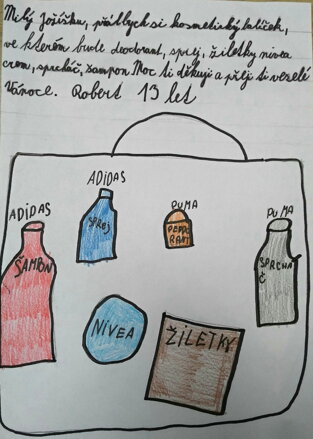 Milý Ježíšku, přál bych si kosmetický balíček,
ve kterém bude deodorant, sprej, žiletky nivea
crem, sprcháč, šampon Moc ti děkuji a přeji ti veselé
Vánoce. Robert 13 let
ADIDAS
PUMA
PUMA
ADIDAS
SPREJ
DEODO
RANT
ŠAMPON
SPRCHÁ
Č
NIVEA
ŽILETKY